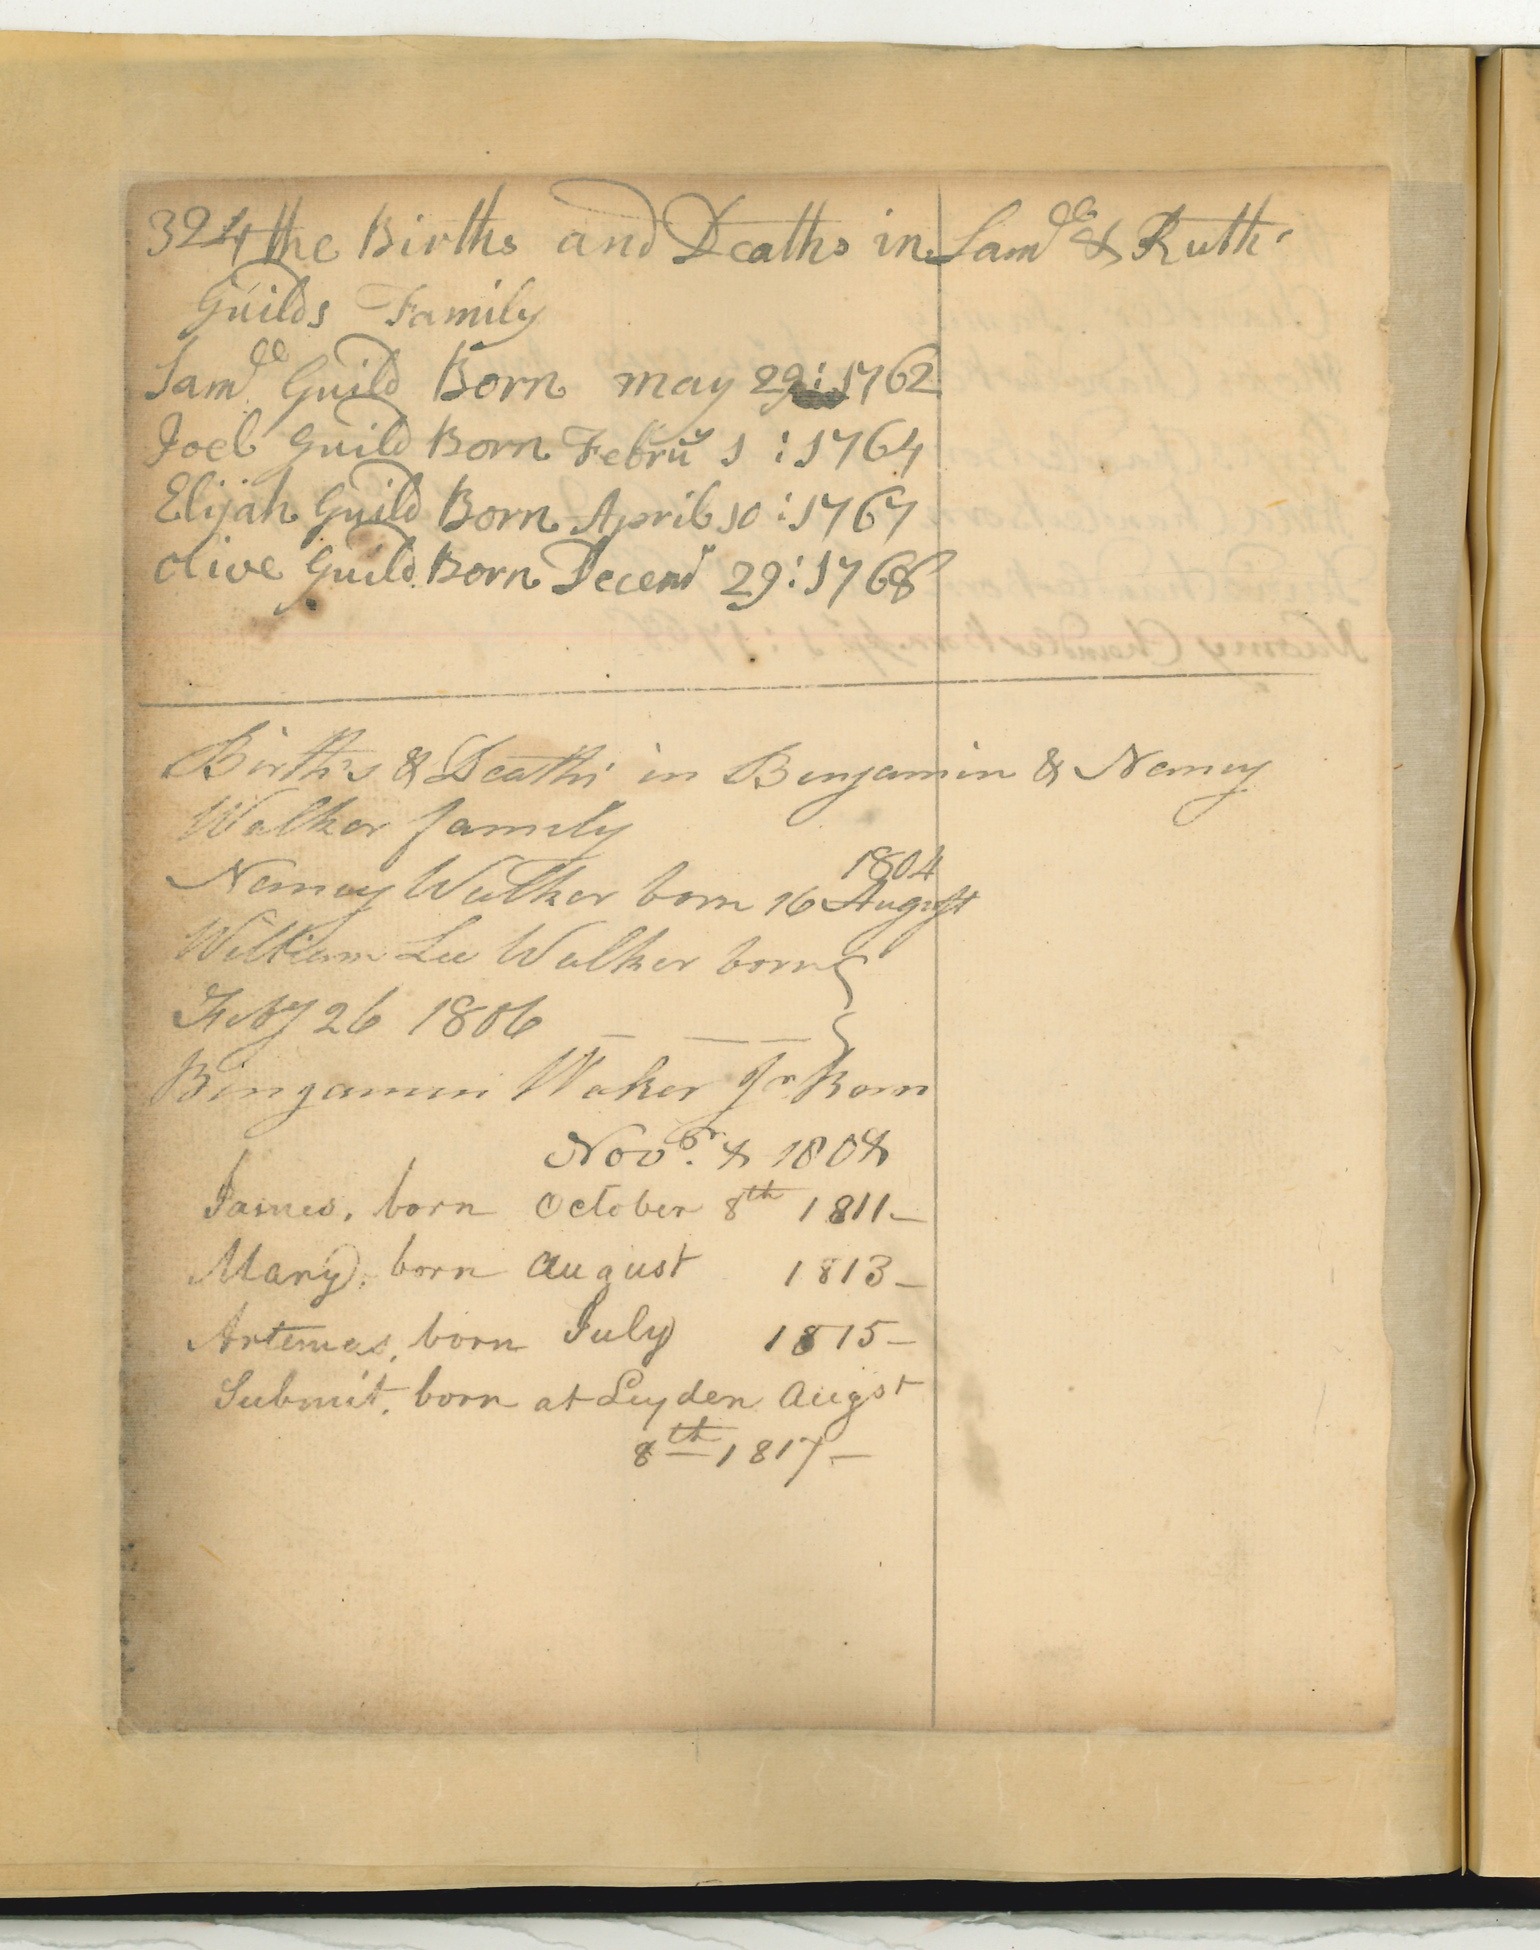 324 the Births and Deaths in Samll & Ruth
Guilds Family
Samll Guild Born may 29: 1762
Joel Guild Born Februy 1 : 1764
Elijah Guild Born April 10 : 1767
olive Guild Born Decemr 29: 1768
Births & Deaths in Benjamin & Nancy
Walker family
1804
Nancy Walker born 16 August
William Lee Walker born
Feby 26 1806
Bingamin Waker Jr Born
Novbr. 8 1808
James, born October 8th 1811_
Mary, born August 1813_
Artemas, born July 1815_
Submit, born at Leyden Augst
8th 1817_